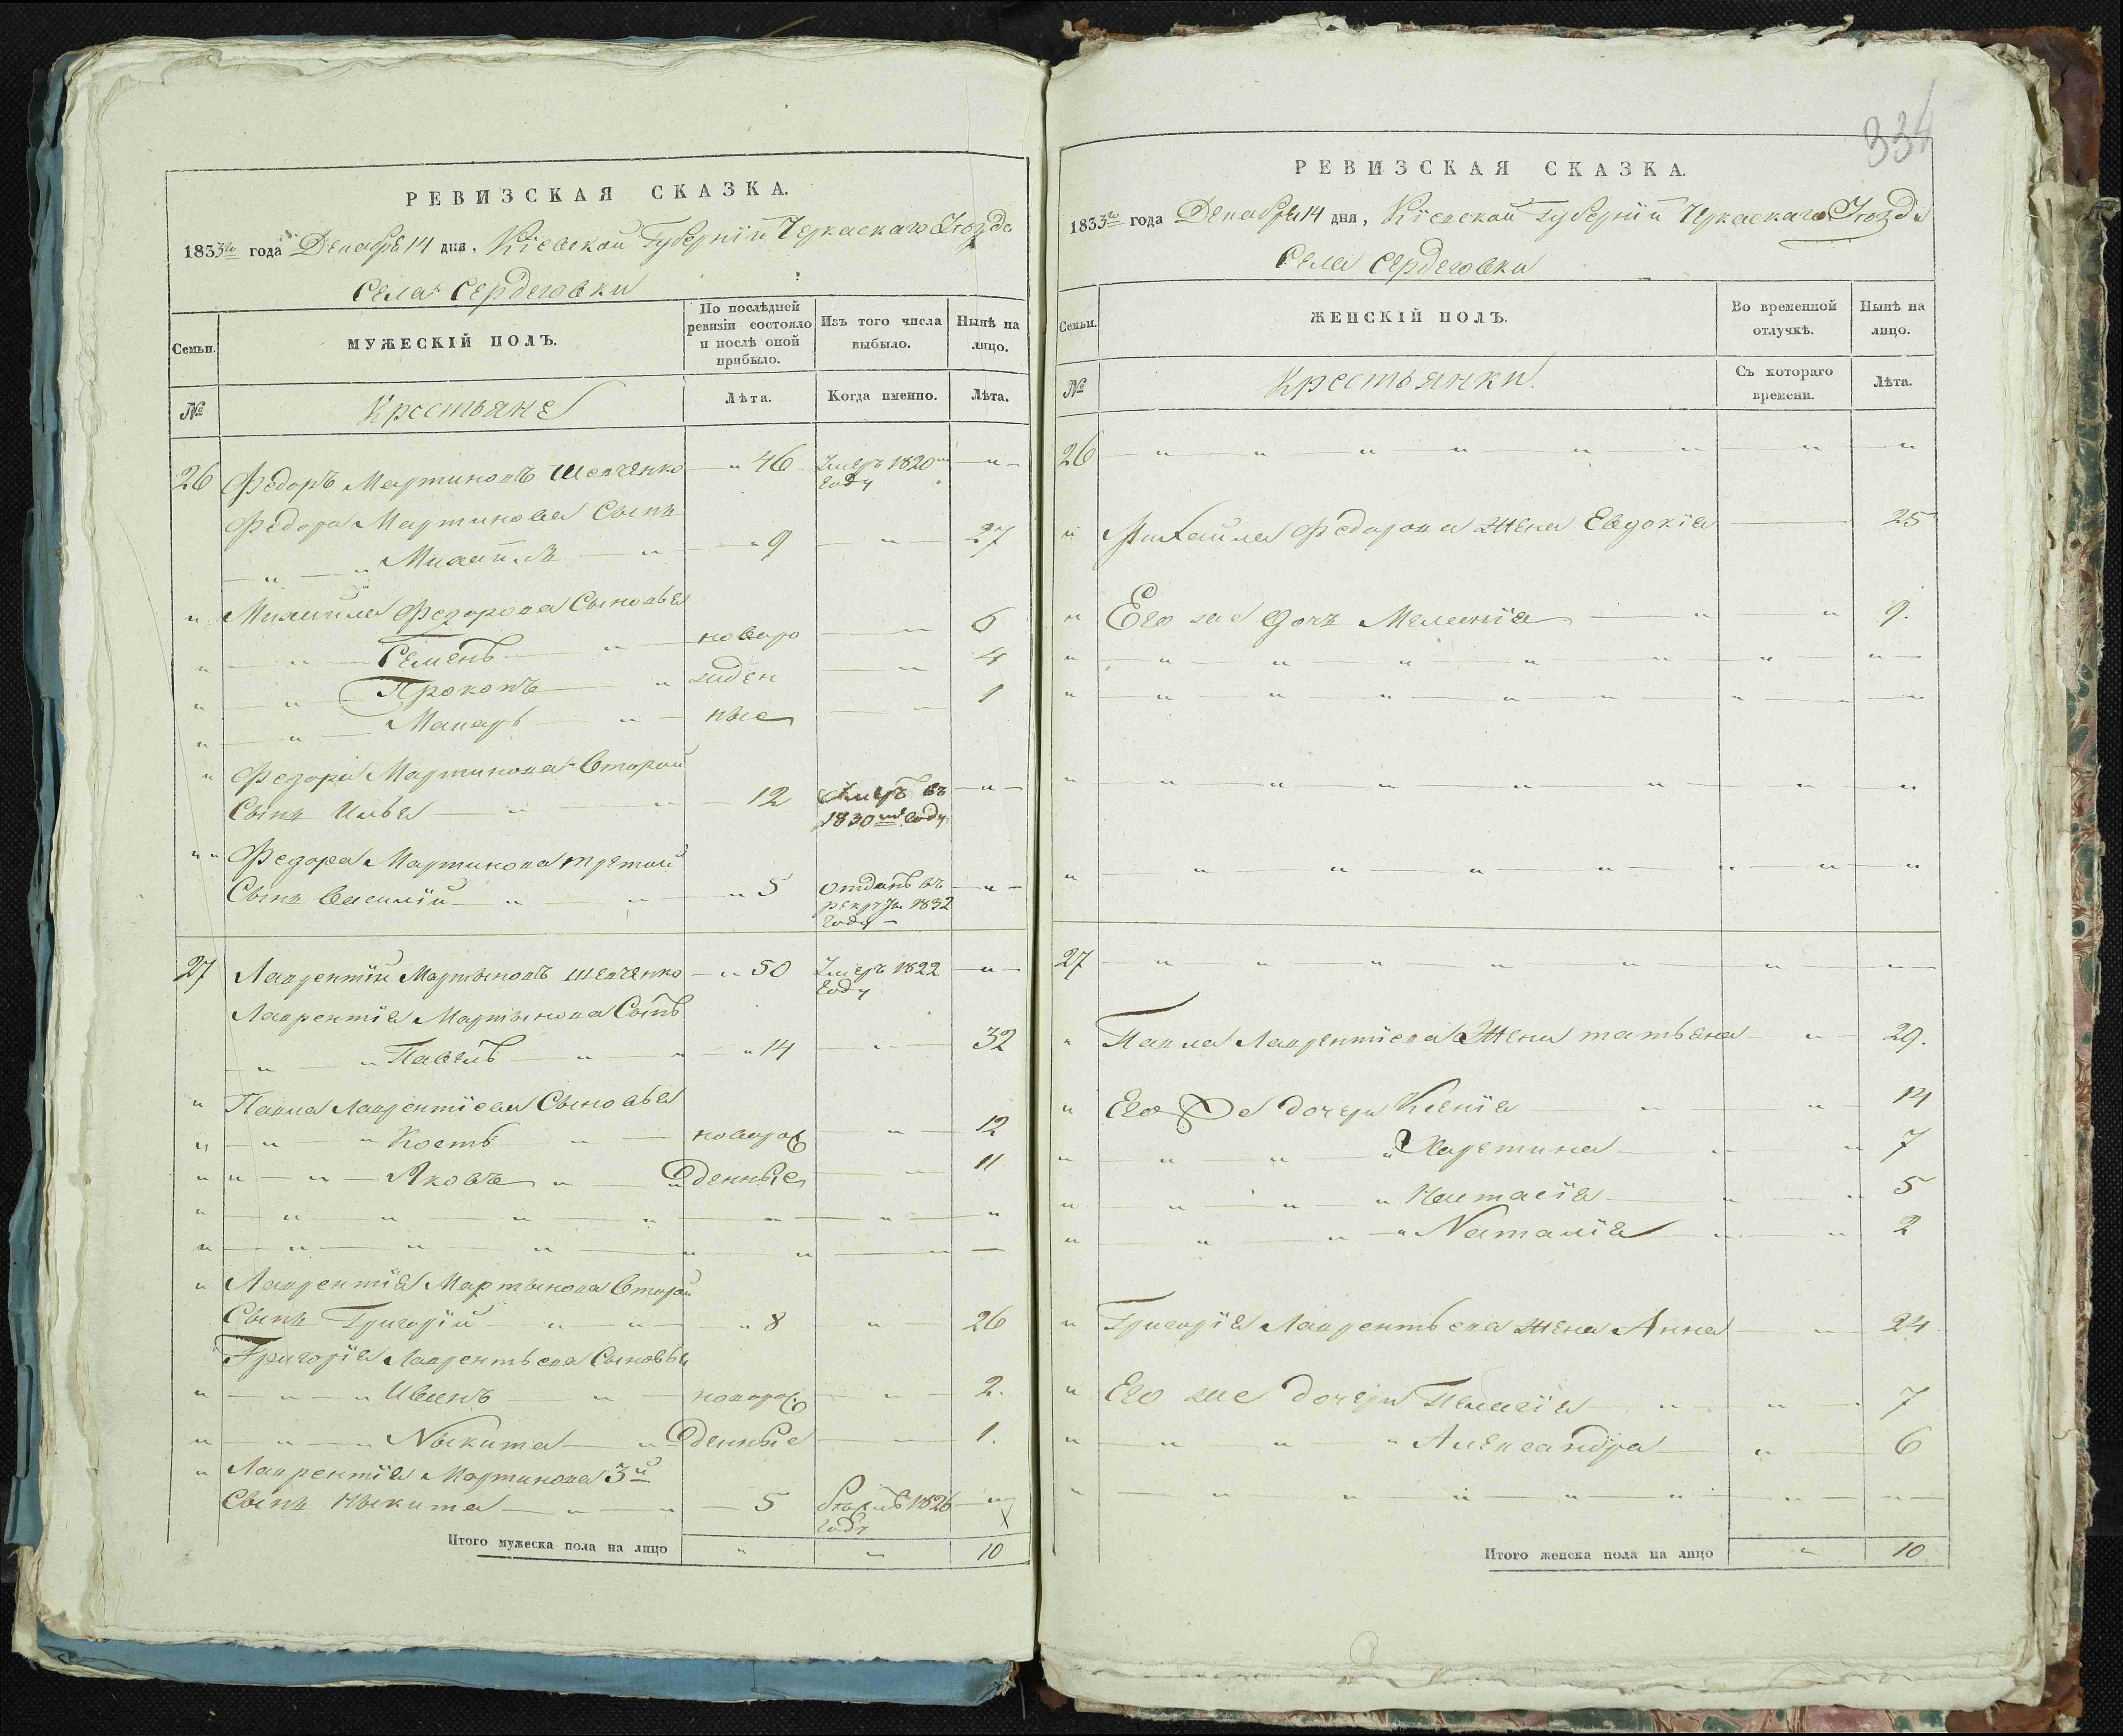 РЕВИЗСКАЯ СКАЗКА.
1833го года Декабря 14 дня, Кіевской Губерніи Черкаскаго Уезда
Села Сердеговки
Семьи.
МУЖЕСКІЙ ПОЛЪ.
По послѣдней ревизіи состояло и послѣ оной прибыло.
Изъ того числа выбыло.
Нынѣ на лицо.
№
Крестьяне
Лѣта.
Когда именно.
Лѣта.
26 Федоръ Мартиновъ Шевченко — " 46 Умеръ 1820 году — " —
Федора Мартинова Сынъ
— " — " Михаилъ — " — " 9 — " — 27
" Михаила Федорова Сыновья
" — " — Семенъ — " — новоро — " — 6
" — " — Прокопъ — " жден — " — 4
" — " — Макаръ — " — ные — " — 1
" Федора Мартинова Второй
Сынъ Илья — " — " — 12 Умеръ въ 1830м году — " —
" " Федора Мартинова третий
Сынъ Василій — " — " — " 5 отданъ въ рекруты 1832 году — " —
27 Лаврентій Мартыновъ Шевченко — " 50 Умеръ 1822 году — " —
Лаврентія Мартынова Сынъ
— " — " Павелъ — " — " " 14 — " — 32
" Павла Лаврентіева Сыновья
" — " — " Кость — " — новоро — " — 12
" " — " — Яковъ — " — " жденные — " — 11
" — " — " — " — " — " — " — "
" — " — " — " — " — " — " —
" Лаврентія Мартынова Второй
Сынъ Григорій — " — " — " 8 — " — 26
Григорія Лаврентьева Сыновья
" — " — " Иванъ — " — новоро — " — 2.
" — " — " Никита — " жденные — " — 1.
" Лаврентія Мартинова 3й
Сынъ Никита — " — " — 5 1826 году — " —
Итого мужеска пола на лицо " " 10
334
РЕВИЗСКАЯ СКАЗКА.
1833го года Декабря 14 дня, Кіевской Губерніи Черкаскаго Уезда
Села Сердеговки
Семьи.
ЖЕНСКІЙ ПОЛЪ.
Во временной отлучкѣ.
Нынѣ на лицо.
№
Крестьянки.
Съ котораго времени.
Лѣта.
26 — " — " — " — " — " — " — " — "
" Михаила Федорова Жена Евдокія — 25
" Его же дочь Меланія — " — " 9.
" — " — " — " — " — " — " — " —
" — " — " — " — " — " — " — " —
" — " — " — " — " — " — " — "
" — " — " — " — " — " — " — "
27 — " — " — " — " — " — " — " —
" Павла Лаврентіева Жена татьяна — " — 29.
" Его же дочери Ксенія — " — " — 14
" — " — " — " Харетина — " — " 7
" — " — " — " Настасія — " — " 5
" — " — " — " Наталія — " — " 2
" Григорія Лаврентьева жена Анна — " — 24
" Его же дочери Пелагія — " — " — 7
" — " — " — " Александра — " — 6
" — " — " — " — " — " — " — " —
Итого женска пола на лицо " 10